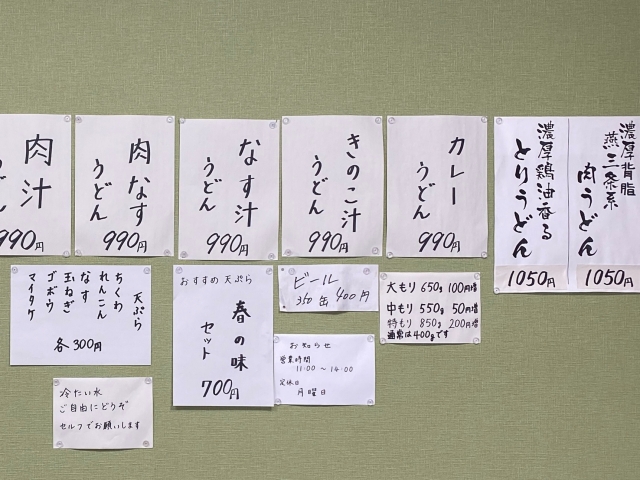 肉汁
うどん
990円
肉なす
うどん
990円
なす汁
うどん
990円
きのこ汁
うどん
990円
カレー
うどん
990円
濃厚鶏油香る
とりうどん
1050円
濃厚背脂
燕三条系
肉うどん
1050円
天ぷら
ちくわ
れんこん
なす
玉ねぎ
ゴボウ
マイタケ
各300円
おすすめ天ぷら
春の味
セット
700円
ビール
350缶 400円
大もり 650g 100円増
中もり 550g 50円増
特もり 850g 200円増
通常は400gです
お知らせ
営業時間
11:00〜14:00
定休日
月曜日
冷たい水
ご自由にどうぞ
セルフでお願いします